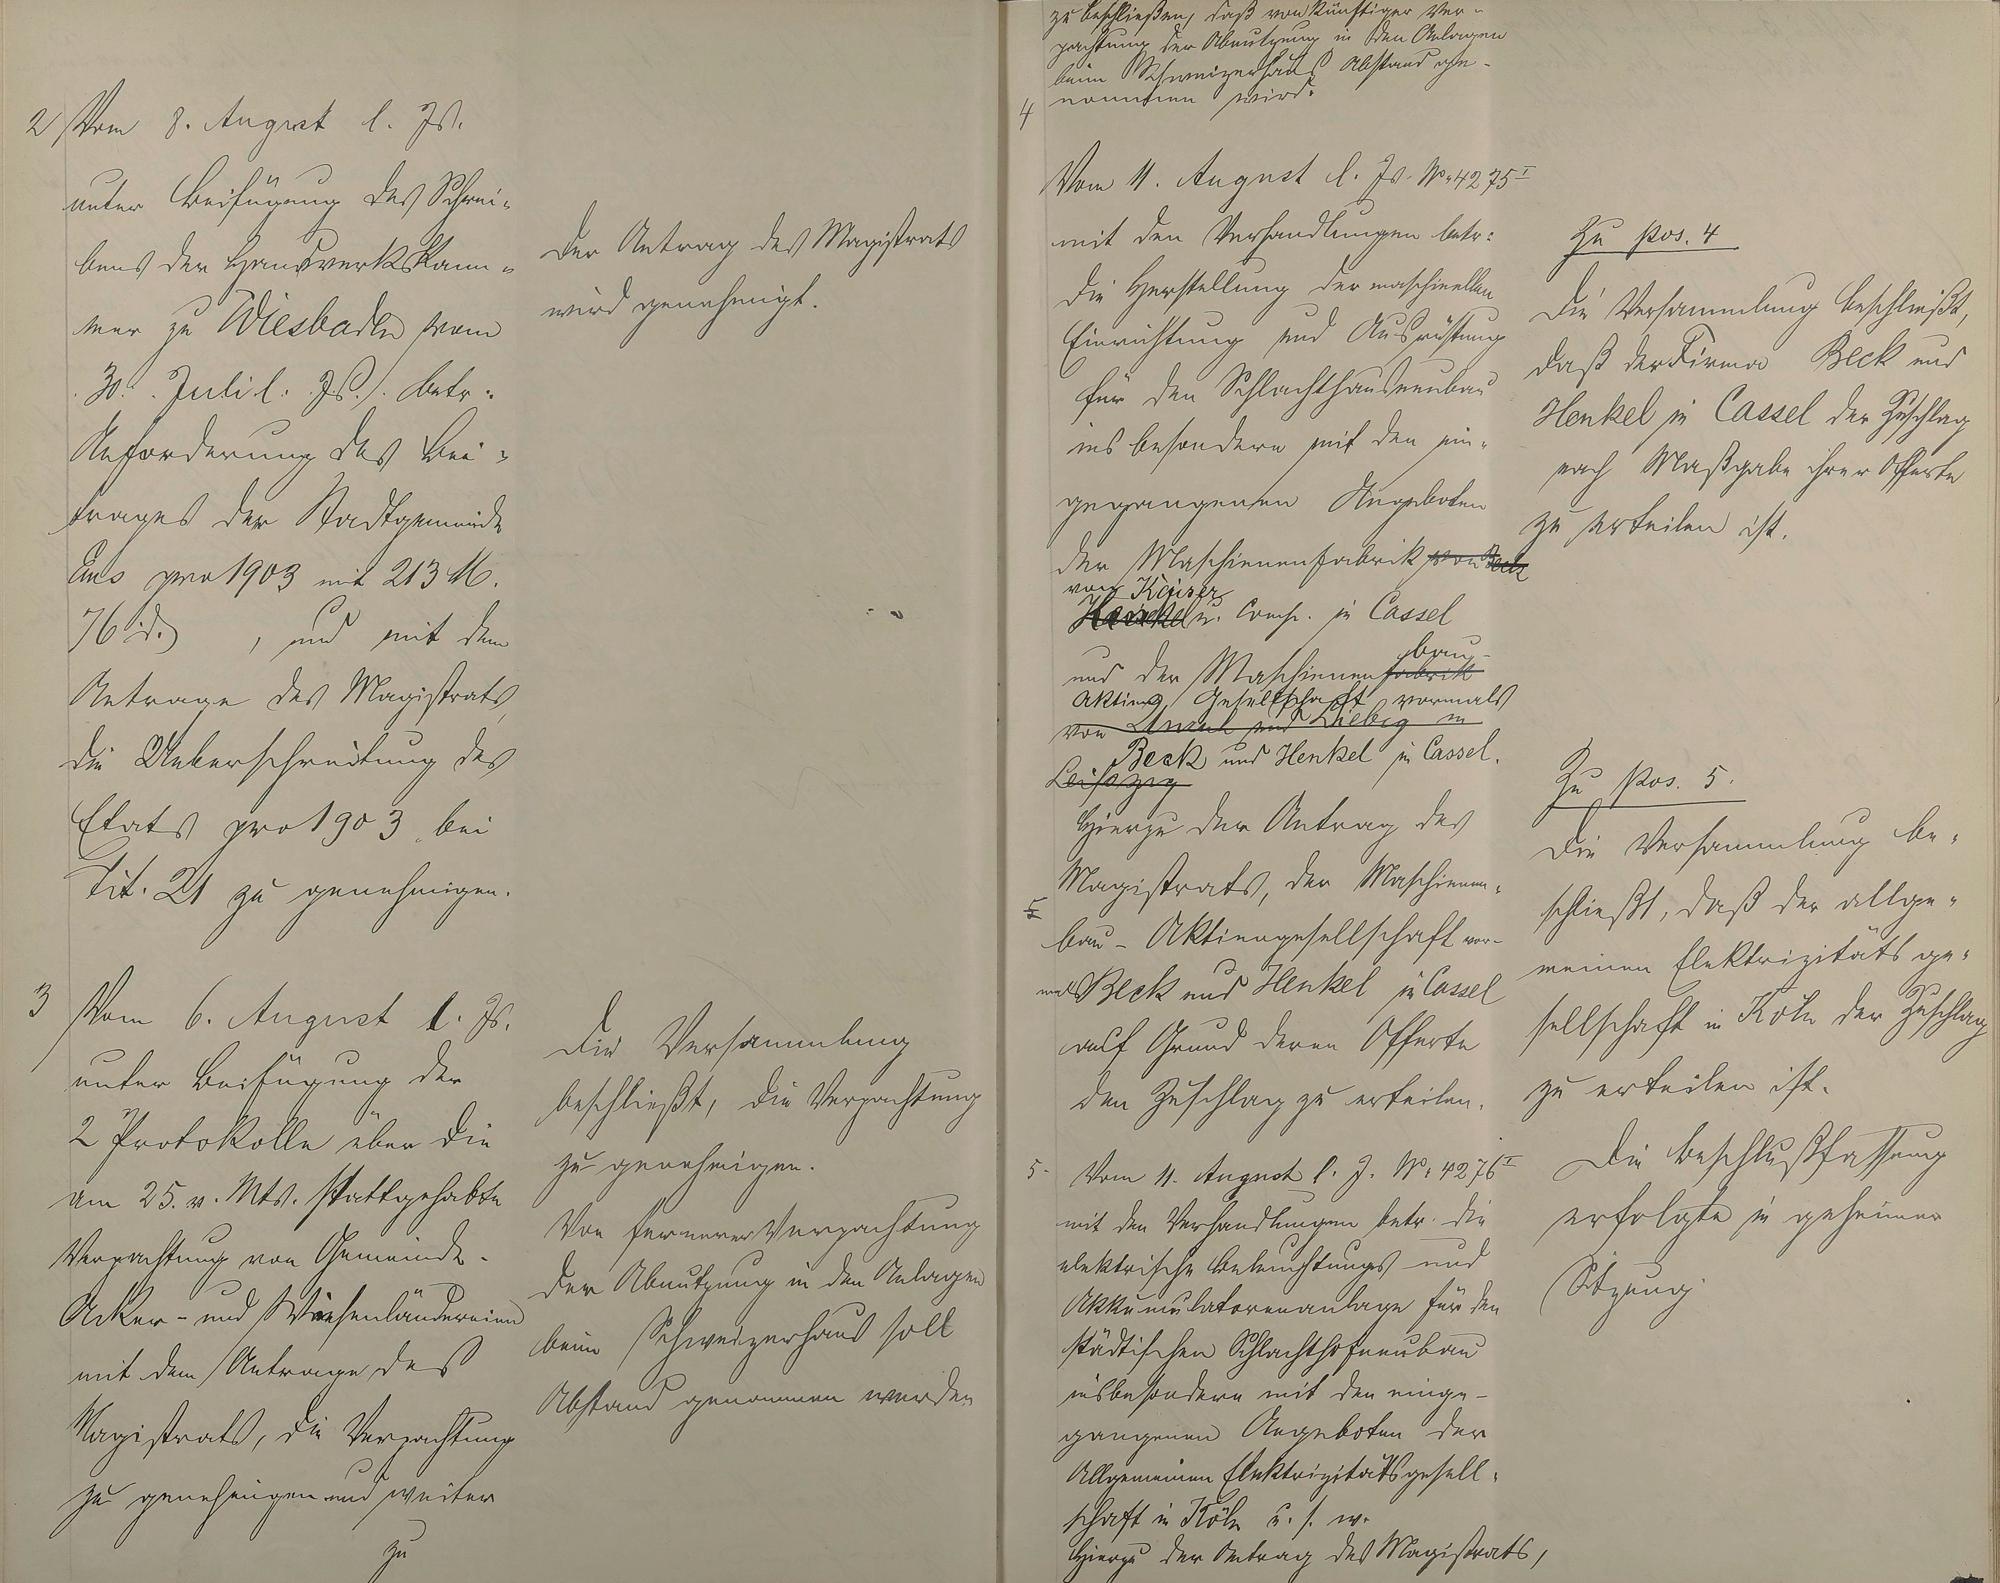 2 Vom 8. August l. Js.
unter Beifügung des Schrei-
bens der Handwerkskam-
mer zu Wiesbaden vom
30. Juli l. Js. betr.
Anforderung des Bei-
trages der Stadtgemeinde
Ems pro 1903 mit 213 M.
76 d. , und mit dem
Antrage des Magistrats,
die Ueberschreitung des
Etats pro 1903 bei
Tit. 21 zu genehmigen.
Der Antrag des Magistrats
wird genehmigt.
3 Vom 6. August l. Js.
unter Beifügung der
2 Protokolle über die
am 25. v. Mts. stattgehabte
Verpachtung von Gemeinde-
Acker- und Wiesenländereien
mit dem Antrage des
Magistrats, die Verpachtung
zu genehmigen und weiter
zu
Die Versammlung
beschließt, die Verpachtung
zu genehmigen.
Von fernerer Verpachtung
der Abnutzung in den Anlagen
beim Schweizerhaus soll
Abstand genommen werden
zu beschließen, daß von künftiger Ver-
pachtung der Abnutzung in den Anlagen
beim Schweizerhaus Abstand ge-
nommen wird.
4
Vom 11. August l. Js. No. 4275 I
mit den Verhandlungen betr.
die Herstellung der maschinellen
Einrichtung und Ausrüstung
für den Schlachthausneubau
insbesondere mit den ein-
gegangenen Angeboten
der Maschienenfabrik von Beck
von Kaiser
Henkel u. Comp. in Cassel
bau-
und der Maschienenfabrik
Aktien Gesellschaft vormals
von und Liebig in
Beck und Henkel in Cassel.
Leipzig
Hierzu der Antrag des
Magistrats, der Maschienen-
5
bau-Aktiengesellschaft vor-
mals Beck und Henkel in Cassel
auf Grund deren Offerte
den Zuschlag zu erteilen.
5. Vom 11. August l. J. No. 4276 I
mit den Verhandlungen betr. die
elektrische Beleuchtungs und
Akkumulatorenanlage für den
städtischen Schlachthofneubau
insbesondere mit den einge-
gangenen Angeboten der
Allgemeinen Elektrizitätsgesell-
schaft in Köln u. s. w.
Hierzu der Antrag des Magistrats,
Zu pos. 4
Die Versammlung beschließt,
daß der Firma Beck und
Henkel in Cassel der Zuschlag
nach Maßgabe ihrer Offerte
zu erteilen ist.
Zu pos. 5.
Die Versammlung be-
schließt, daß der allge-
meinen Elektrizitätsge-
sellschaft in Köln der Zuschlag
zu erteilen ist.
Die Beschlußfassung
erfolgte in geheimer
Sitzung.